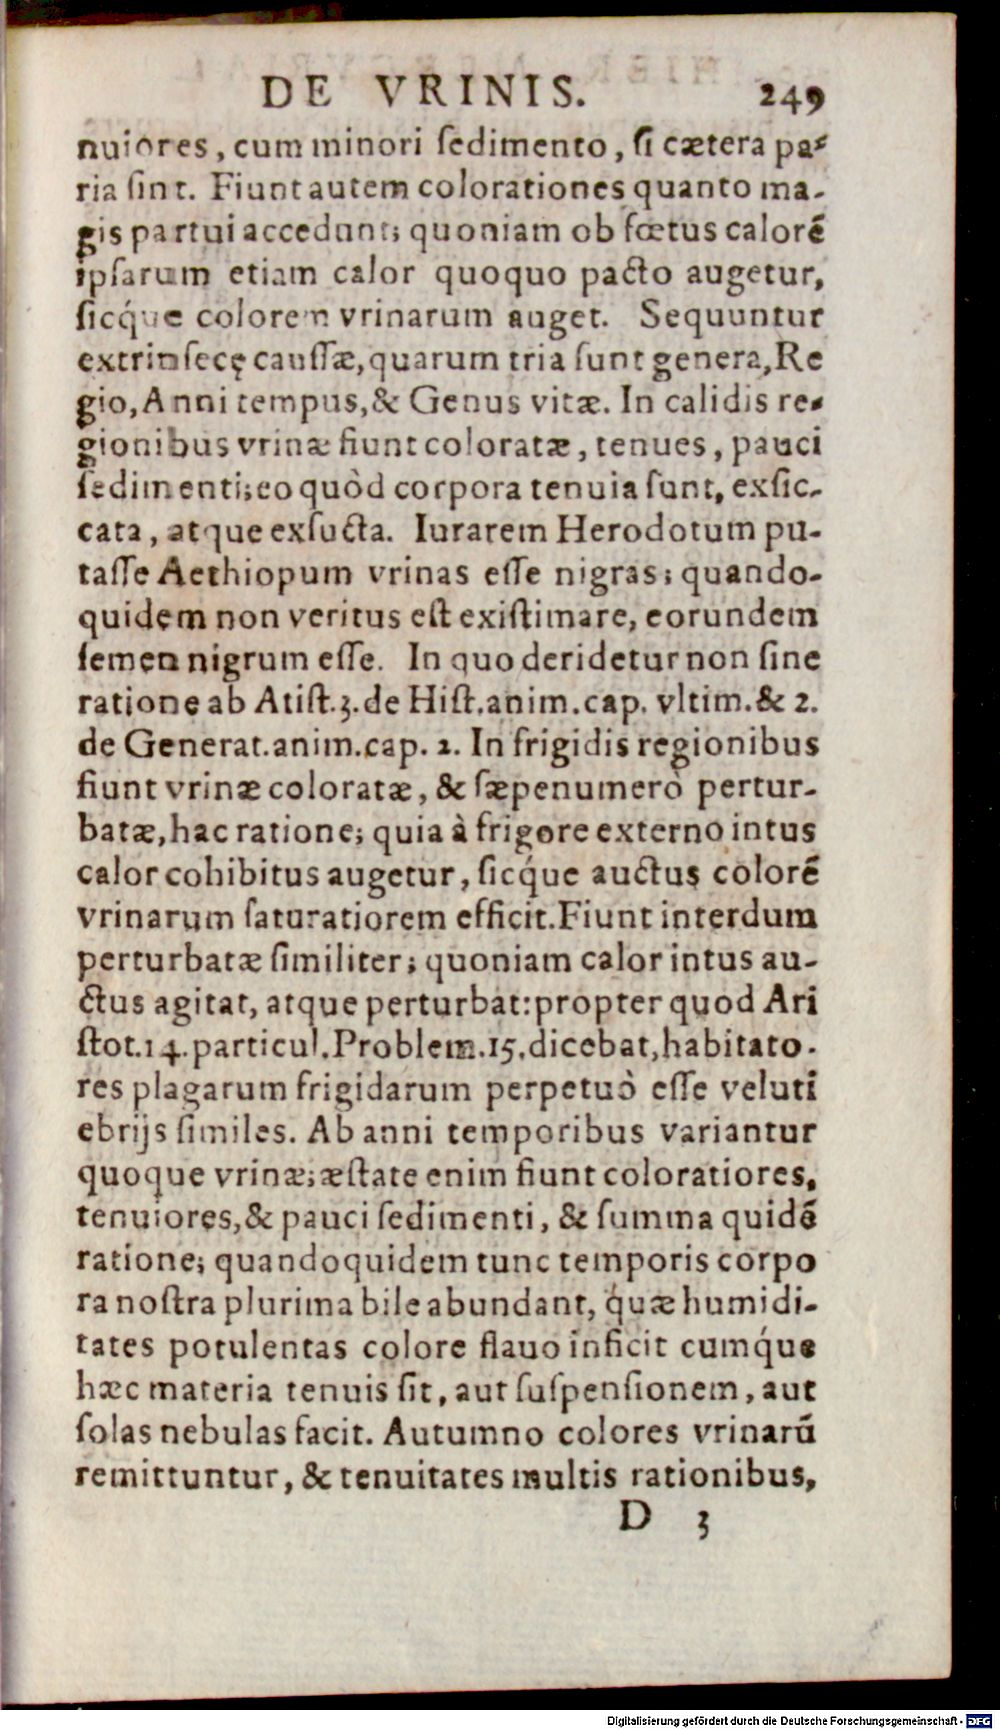 DE VRINIS. 249
nuiores, cum minori ſedimento, ſi cætera pa-
ria ſint. Fiunt autem colorationes quanto ma-
gis partui accedunt; quoniam ob fœtus calorē
ipſarum etiam calor quoquo pacto augetur,
ſicq́ue colorem vrinarum auget. Sequuntur
extrinſecę cauſſæ, quarum tria ſunt genera, Re
gio, Anni tempus, & Genus vitæ. In calidis re-
gionibus vrinæ fiunt coloratæ, tenues, pauci
ſedimenti; eo quòd corpora tenuia ſunt, exſic-
cata, atque exſucta. Iurarem Herodotum pu-
taſſe Aethiopum vrinas eſſe nigras; quando-
quidem non veritus eſt exiſtimare, eorundem
ſemen nigrum eſſe. In quo deridetur non ſine
ratione ab Atiſt. 3. de Hiſt. anim. cap. vltim. & 2.
de Generat. anim. cap. 2. In frigidis regionibus
fiunt vrinæ coloratæ, & ſæpenumerò pertur-
batæ, hac ratione; quia à frigore externo intus
calor cohibitus augetur, ſicq́ue auctus colorē
vrinarum ſaturatiorem efficit. Fiunt interdum
perturbatæ ſimiliter; quoniam calor intus au-
ctus agitat, atque perturbat: propter quod Ari
ſtot. 14. particul. Problem. 15. dicebat, habitato-
res plagarum frigidarum perpetuò eſſe veluti
ebrijs ſimiles. Ab anni temporibus variantur
quoque vrinæ; æſtate enim fiunt coloratiores,
tenuiores, & pauci ſedimenti, & ſumma quidē
ratione; quandoquidem tunc temporis corpo
ra noſtra plurima bile abundant, quæ humidi-
tates potulentas colore flauo inficit cumq́ue
hæc materia tenuis ſit, aut ſuſpenſionem, aut
ſolas nebulas facit. Autumno colores vrinarū
remittuntur, & tenuitates multis rationibus,
D 3
Digitalisierung gefördert durch die Deutsche Forschungsgemeinschaft - DFG